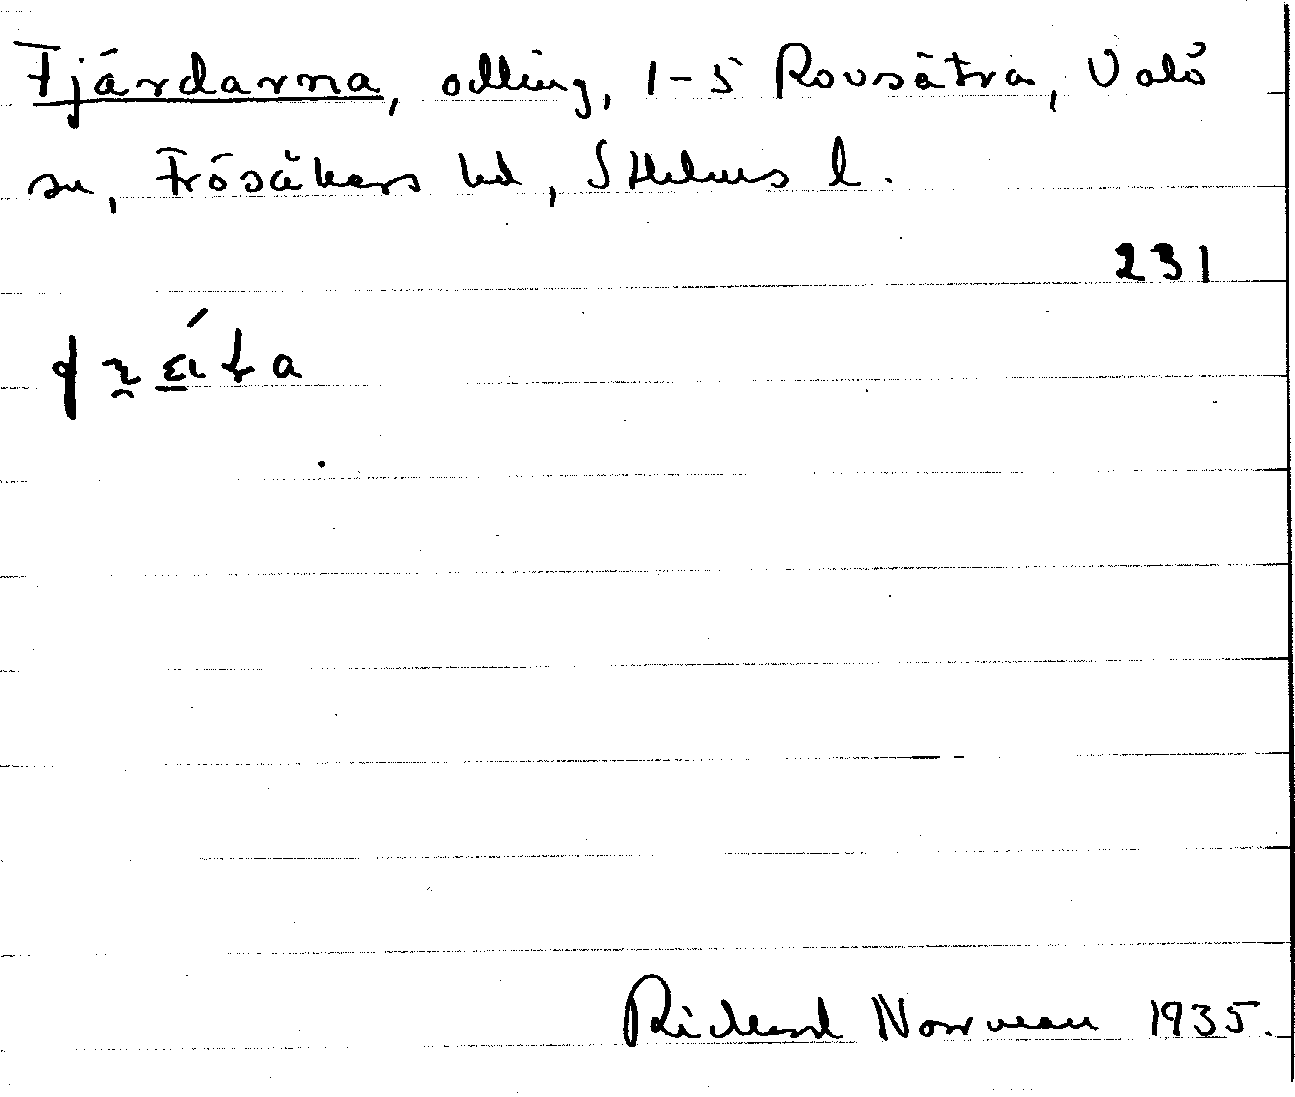 Fjärdarna, odling, 1-5 Rovsätra, Valö
sn, Frösåkers hd, Sthlms l.
231
Rickard Norrman 1935.